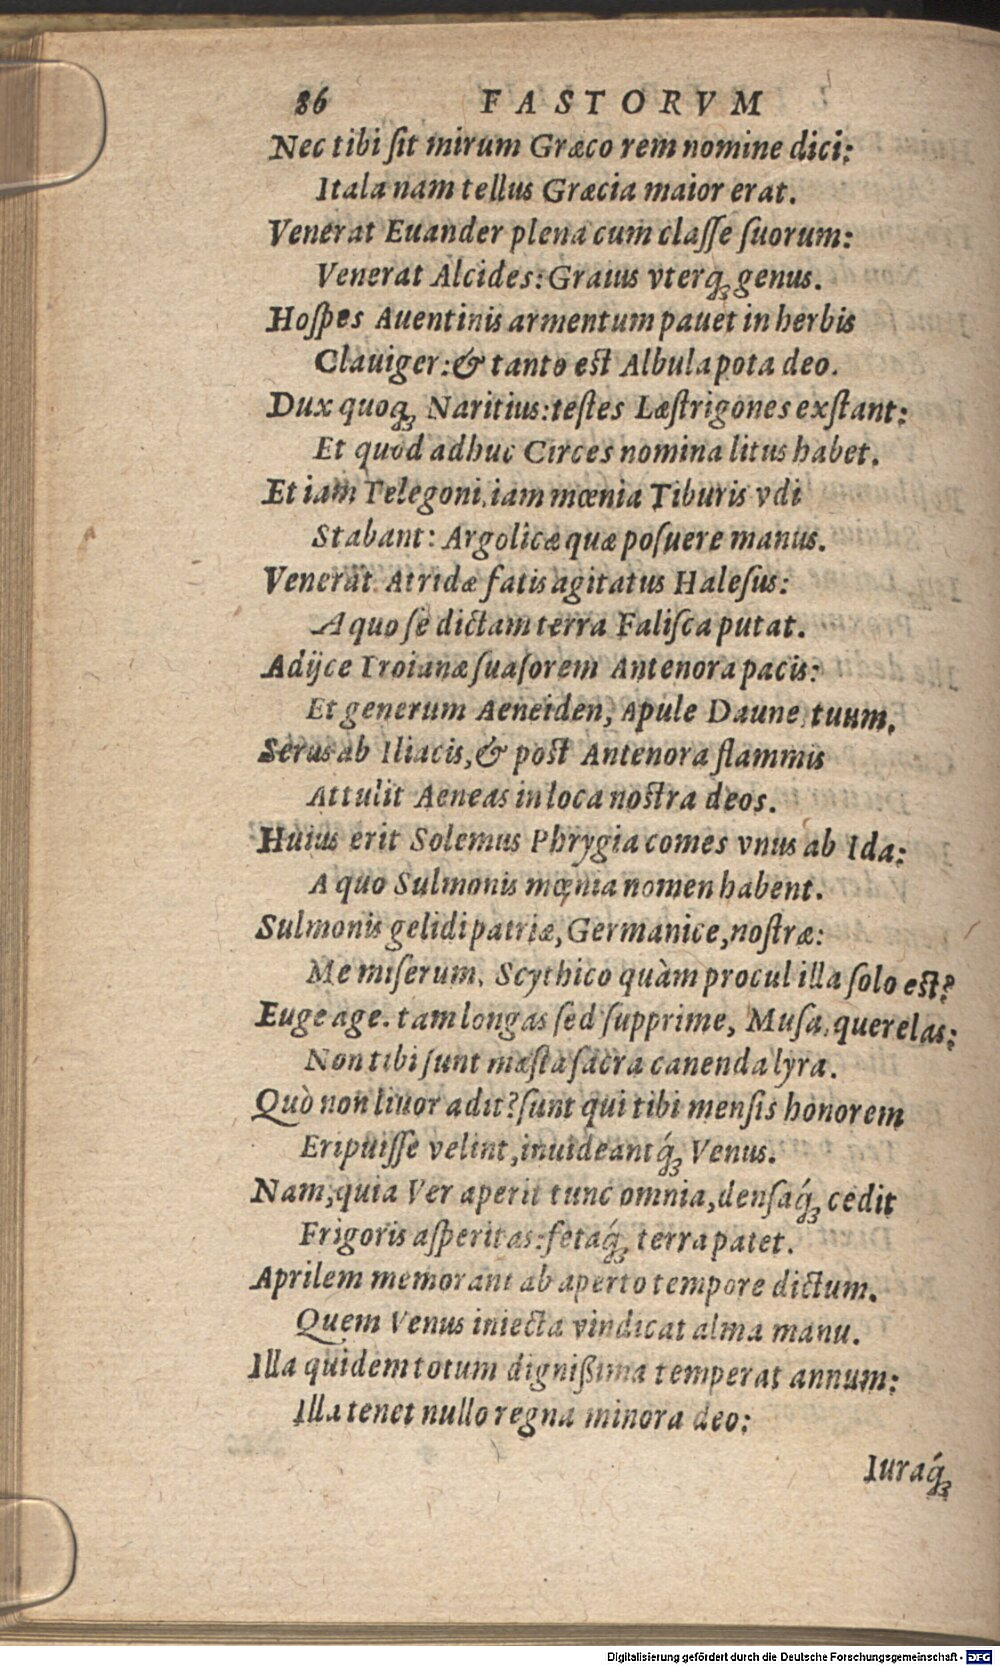 86 FASTORVM
Nec tibi ſit mirum Græco rem nomine dici:
Itala nam tellus Græcia maior erat.
Venerat Euander plena cum claſſe ſuorum:
Venerat Alcides: Graius vterq́ꝫ genus.
Hoſpes Auentinis armentum pauet in herbis
Clauiger: & tanto est Albula pota deo.
Dux quoqꝫ Naritius: testes Læſtrigones exſtant:
Et quod adhuc Circes nomina litus habet.
Et iam Telegoni, iam mœnia Tiburis vdi
Stabant: Argolicæ quæ poſuere manus.
Venerat Atridæ fatis agitatus Haleſus:
A quo ſe dictam terra Faliſca putat.
Adijce Troianæ ſuaſorem Antenora pacis:
Et generum Aeneiden, Apule Daune, tuum.
Serus ab Iliacis, & post Antenora flammis
Attulit Aeneas in loca nostra deos.
Huius erit Solemus Phrygia comes vnus ab Ida:
A quo Sulmonis mœnia nomen habent.
Sulmonis gelidi patriæ, Germanice, noſtræ:
Me miſerum, Scythico quàm procul illa ſolo est?
Euge age. tam longas ſed ſupprime, Muſa, querelas:
Non tibi ſunt mæſta ſacra canenda lyra.
Quò non liuor adit? ſunt qui tibi menſis honorem
Eripuiſſe velint, inuideantq́ꝫ Venus.
Nam, quia Ver aperit tunc omnia, denſaq́ꝫ cedit
Frigoris aſperitas: fetaq́ꝫ terra patet.
Aprilem memorant ab aperto tempore dictum.
Quem Venus iniecta vindicat alma manu.
Illa quidem totum dignißima temperat annum:
Illa tenet nullo regna minora deo:
Iuraq́ꝫ
Digitalisierung gefördert durch die Deutsche Forschungsgemeinschaft - DFG